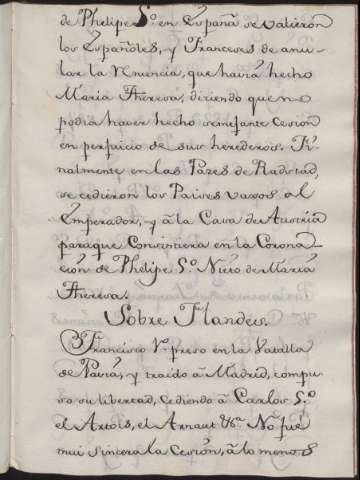 de Phelipe 5.º en España se valieron
los Españoles, y Franceses de anu-
lar la renuncia, que havia hecho
Maria Theresa, diciendo que no
podia haver hecho semejante Cesion
en perjuicio de sus herederos. Fi-
nalmente en las Pazes de Radstad,
se cedieron los Paises vaxos al
Emperador, y à la Casa de Austria
paraque Conviniera en la Corona-
ción de Phelipe 5.º Nieto de Maria
Theresa.
Sobre Flandes.
Francisco 1.º preso en la Batalla
de Pavia, y traido à Madrid, compu-
so su libertad, Cediendo à Carlos 5.º
el Artois, el Arnaut &.ª No fue
mui sincera la Cesion, à lo menos